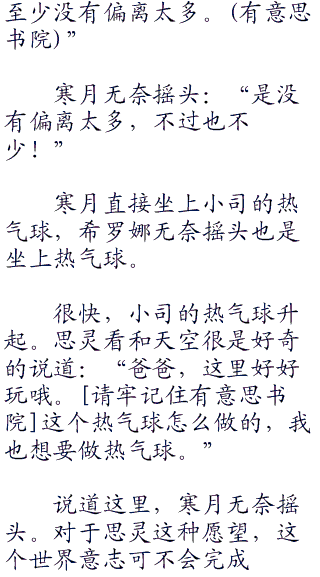 至少没有偏离太多。(有意思
书院)”
寒月无奈摇头：“是没
有偏离太多，不过也不
少！”
寒月直接坐上小司的热
气球，希罗娜无奈摇头也是
坐上热气球。
很快，小司的热气球升
起。思灵看和天空很是好奇
的说道：“爸爸，这里好好
玩哦。[请牢记住有意思书
院]这个热气球怎么做的，我
也想要做热气球。”
说道这里，寒月无奈摇
头。对于思灵这种愿望，这
个世界意志可不会完成